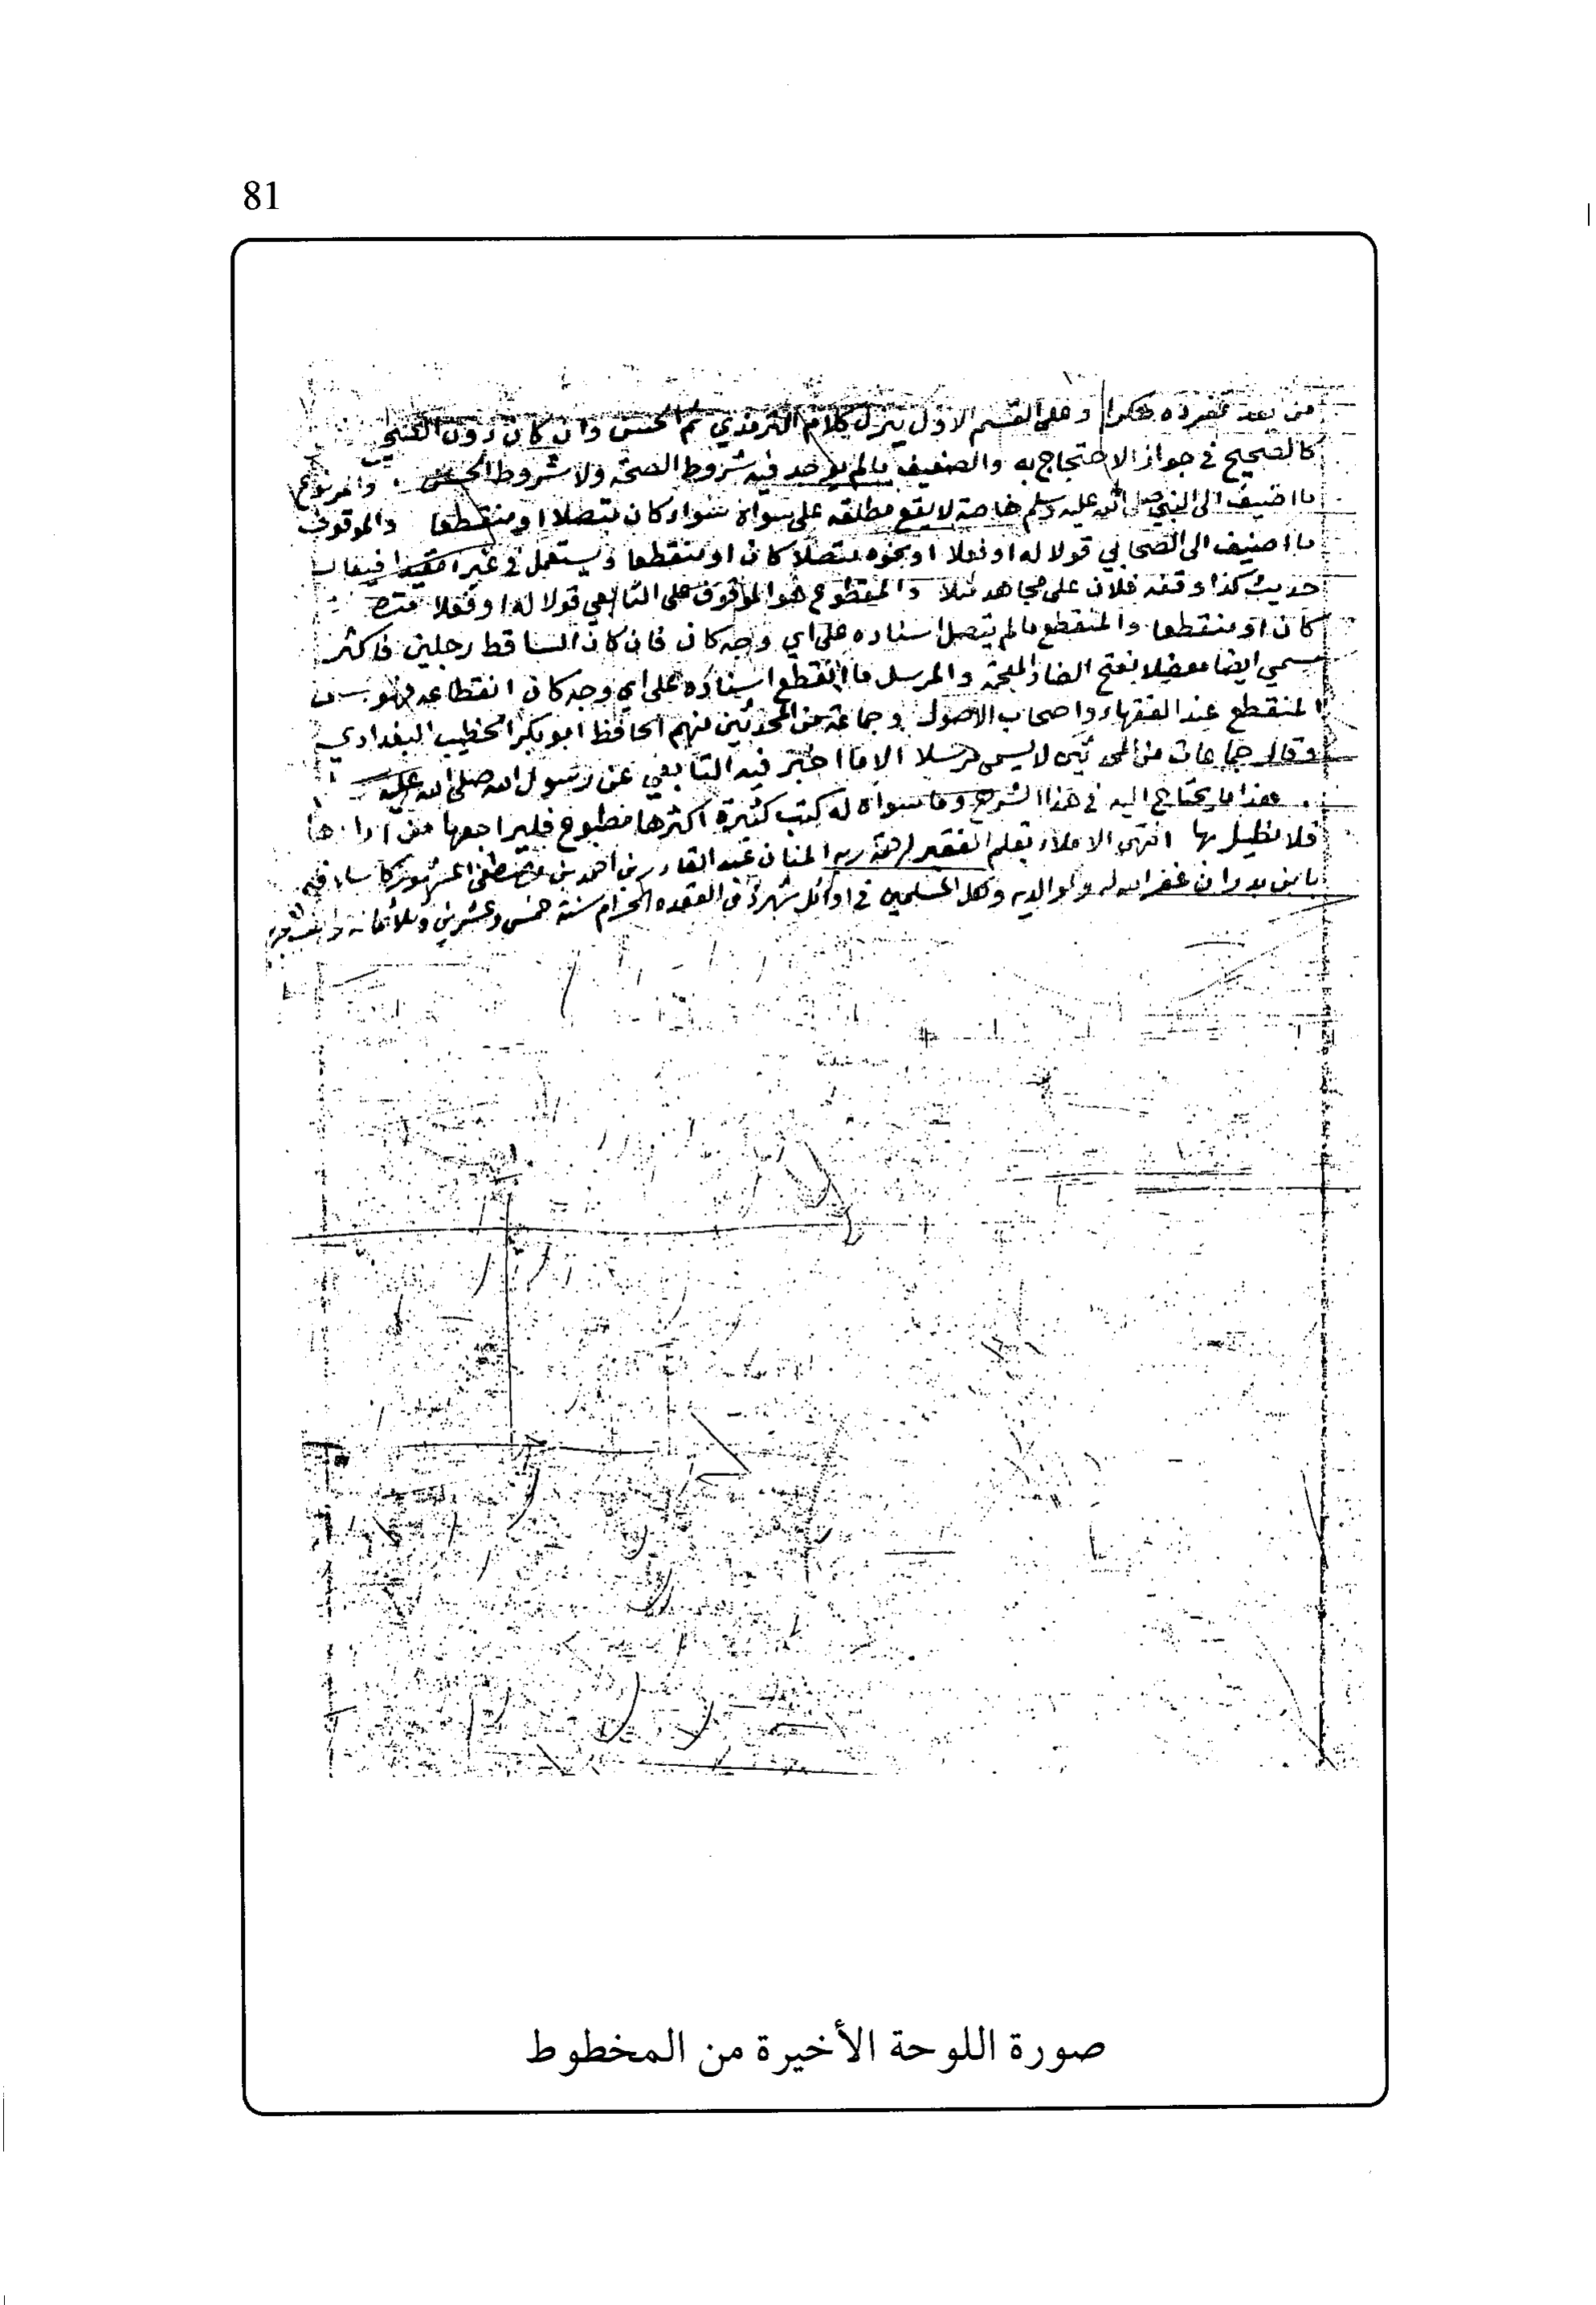 81
من يعد تفرده منكرا وعلى القسم الاول ينزل كلام الترمذي ثم الحسن وان كان دون الصحيح
كالصحيح في جواز الاحتجاج به والضعيف مالم يوجد فيه شروط الصحة ولا شروط الحسن والمرفوع
ما اضيف الى النبي صلى الله عليه وسلم خاصة لا يقع مطلقه على سواه سواء كان متصلا او منقطعا والموقوف
ما اضيف الى الصحابي قولا له او فعلا او نحوه متصلا كان او منقطعا ويستعمل في غيره مقيدا فيقال
حديث كذا وقفه فلان على مجاهد مثلا والمقطوع هو الموقوف على التابعي قولا له او فعلا
كان او منقطعا والمنقطع مالم يتصل اسناده على اي وجه كان فان كان الساقط رجلين فاكثر
سمي ايضا معضلا بفتح الضاد المعجمة والمرسل ما انقطع اسناده على اي وجه كان انقطاعه فهو
المنقطع عند الفقهاء واصحاب الاصول وجماعة من المحدثين منهم الحافظ ابو بكر الخطيب البغدادي
وقال جماعات من المحدثين لا يسمى مرسلا الا ما اخبر فيه التابعي عن رسول الله صلى الله عليه
هذا ما يحتاج اليه في هذا الشرح وما سواه له كتب كثيرة اكثرها مطبوع فليراجعها من ارادها
فلا نطيل بها انتهى الاملاء بقلم الفقير لرحمة ربه المنان عبد القادر بن احمد بن مصطفى المشهور كاسلافه
بابن بدران غفر الله له ولوالديه ولكل المسلمين في اوائل شهر ذي القعدة الحرام سنة خمس وعشرين وثلاثمائة
صورة اللوحة الأخيرة من المخطوط